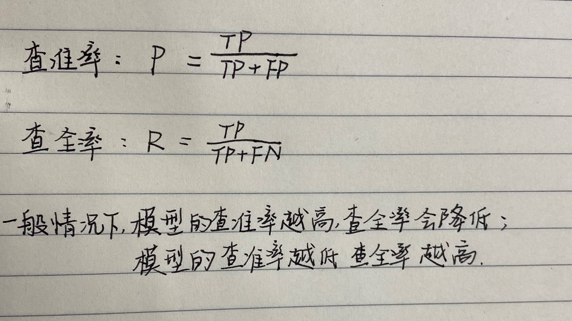 查准率：P = TP / TP+FP
查全率：R = TP / TP+FN
一般情况下,模型的查准率越高,查全率会降低；
模型的查准率越低 查全率越高.